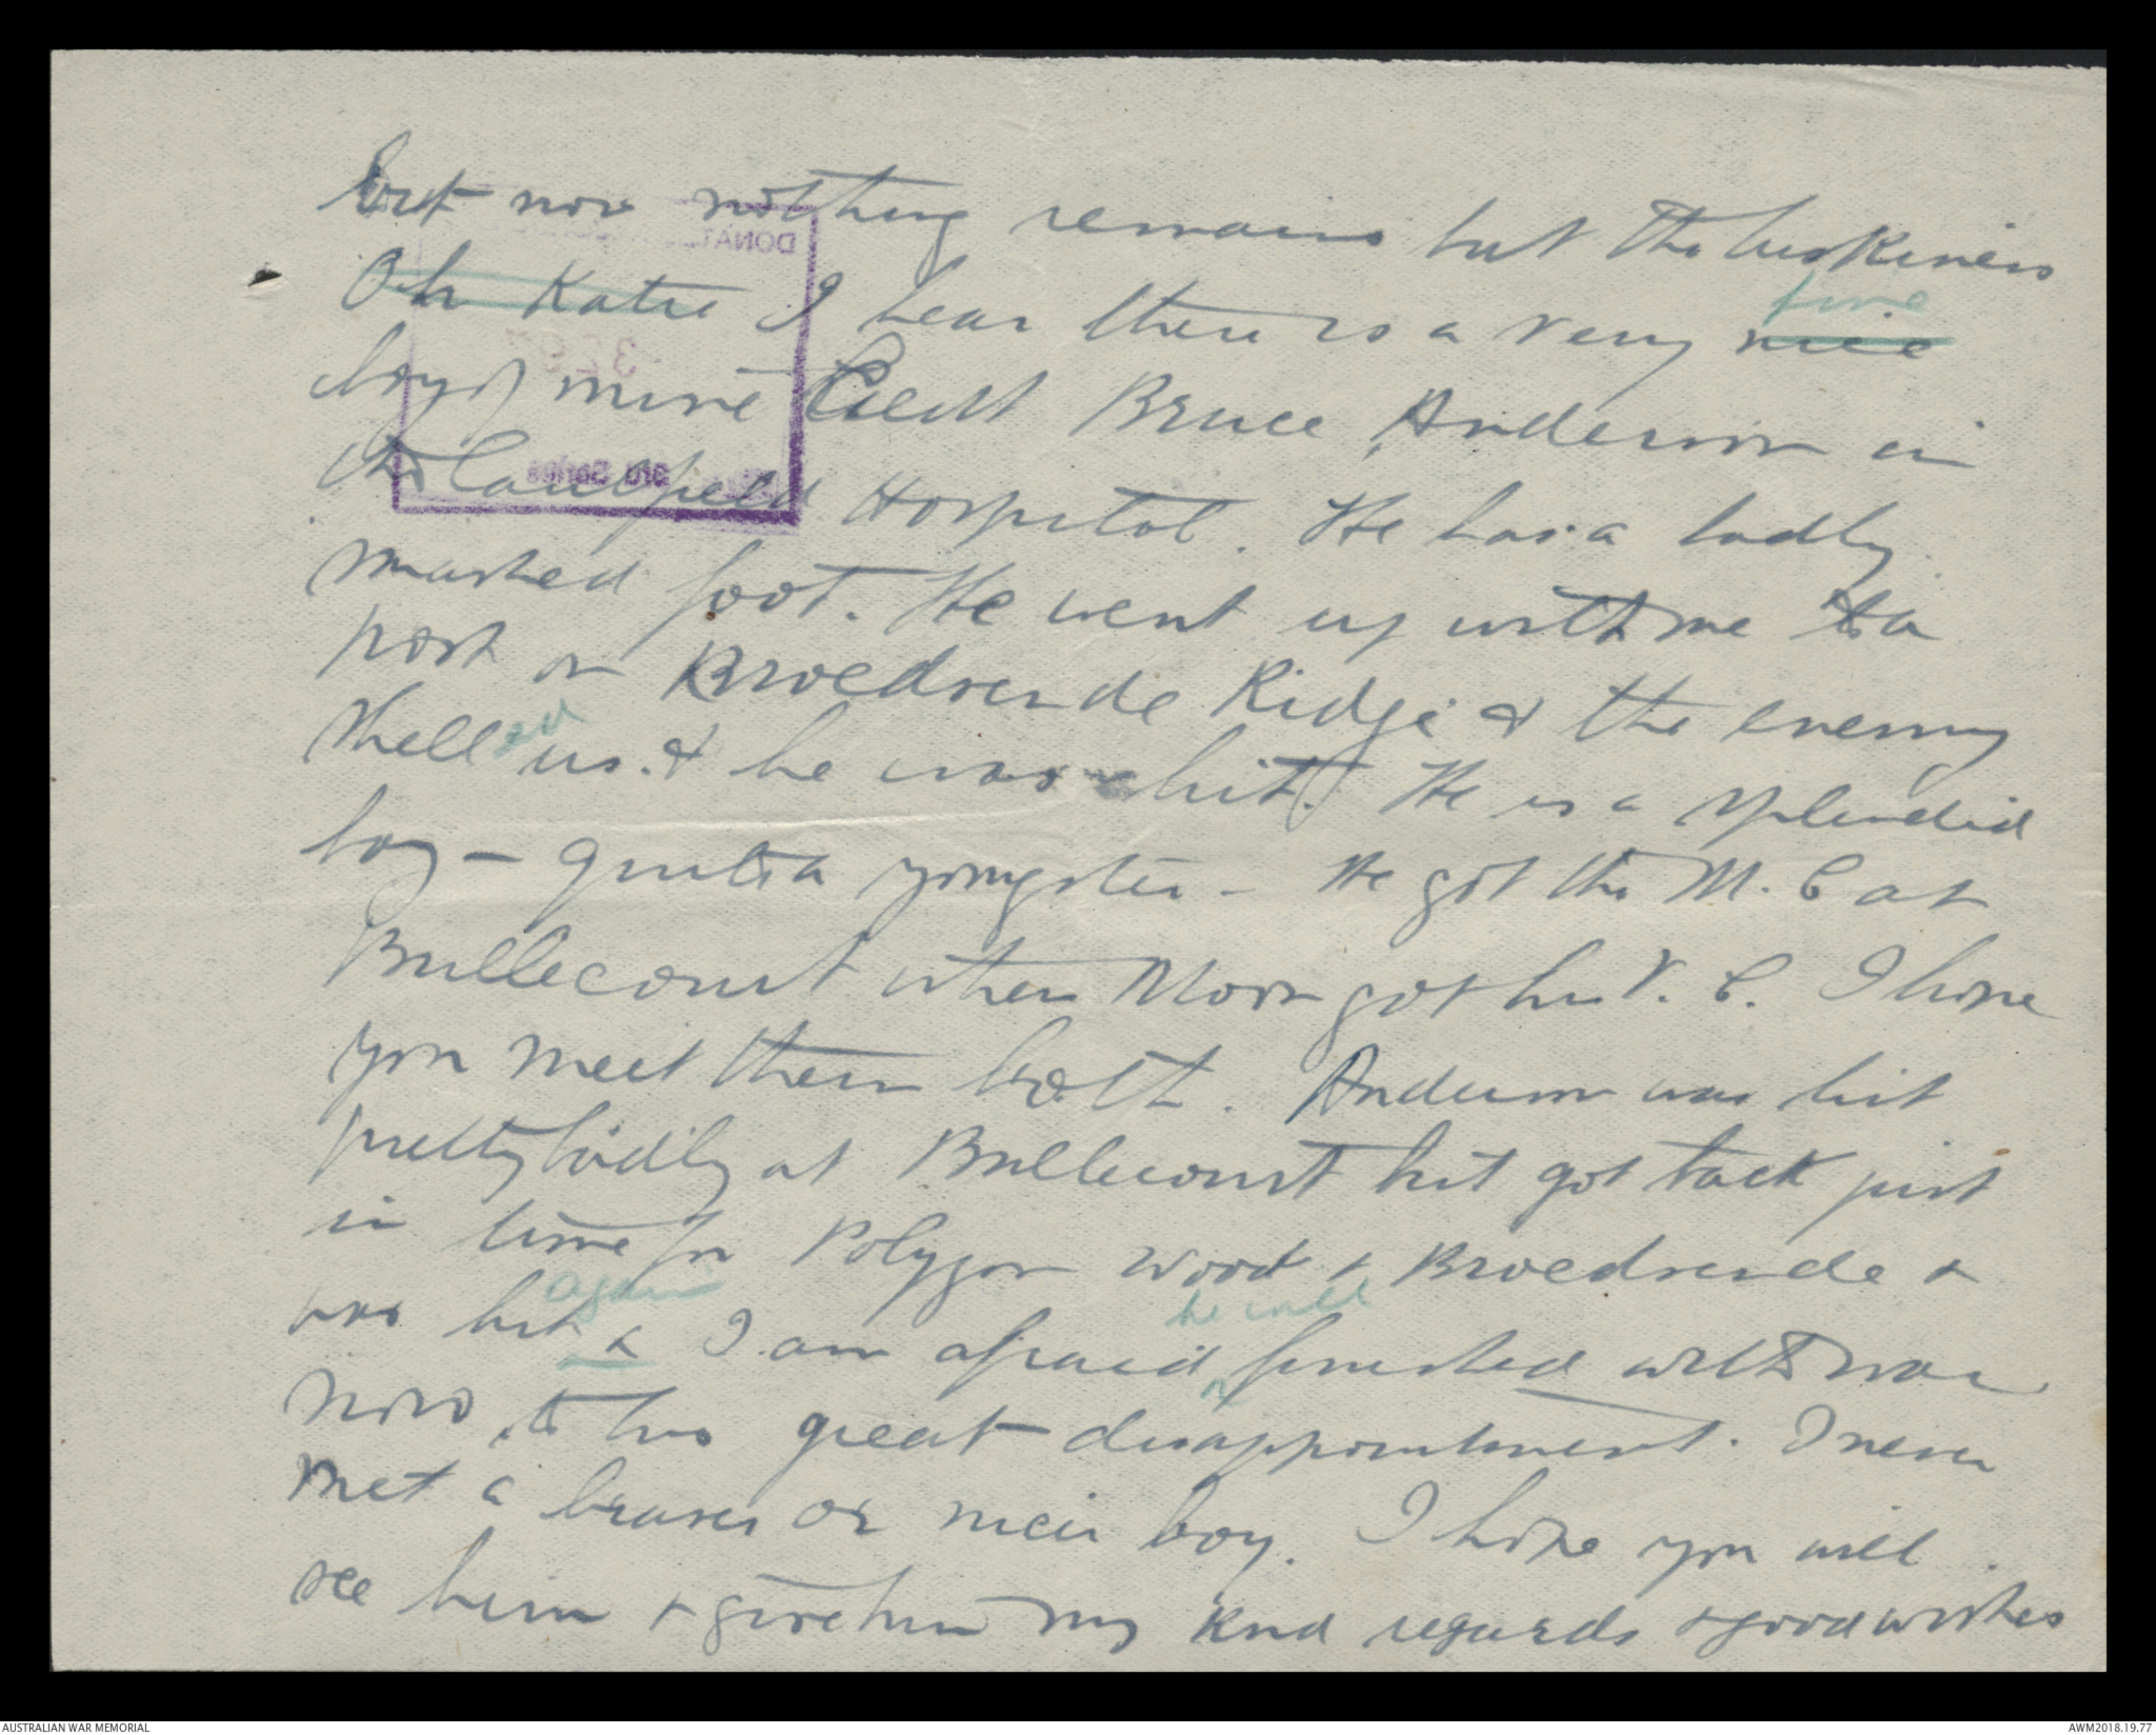 but now nothing remains but the huskiness
Oh Katie I hear there is a very nice fine
boy of mine Lieutt Bruce Anderson in
the Caulfield Hospital. He has a badly
smashed foot. He went up with me to a
post on Broedseinde Ridge & the enemy
shelled us. & he was hit. He is a splendid
boy - quite a youngster - He got the M. C at
Bullecourt when Moon got his V. C. I hope
you meet them both. Anderson was hit
pretty badly at Bullecourt but got back just
in time for Polygon Wood & Broedseinde &
was hit again & I am afraid he will finished with war
now, to his great disappointment. I never
met a braver or nicer boy. I hope you will
see him & give him my kind regards & good wishes
DONAT
3rd Series
AUSTRALIAN WAR MEMORIAL
AWM2018.19.77